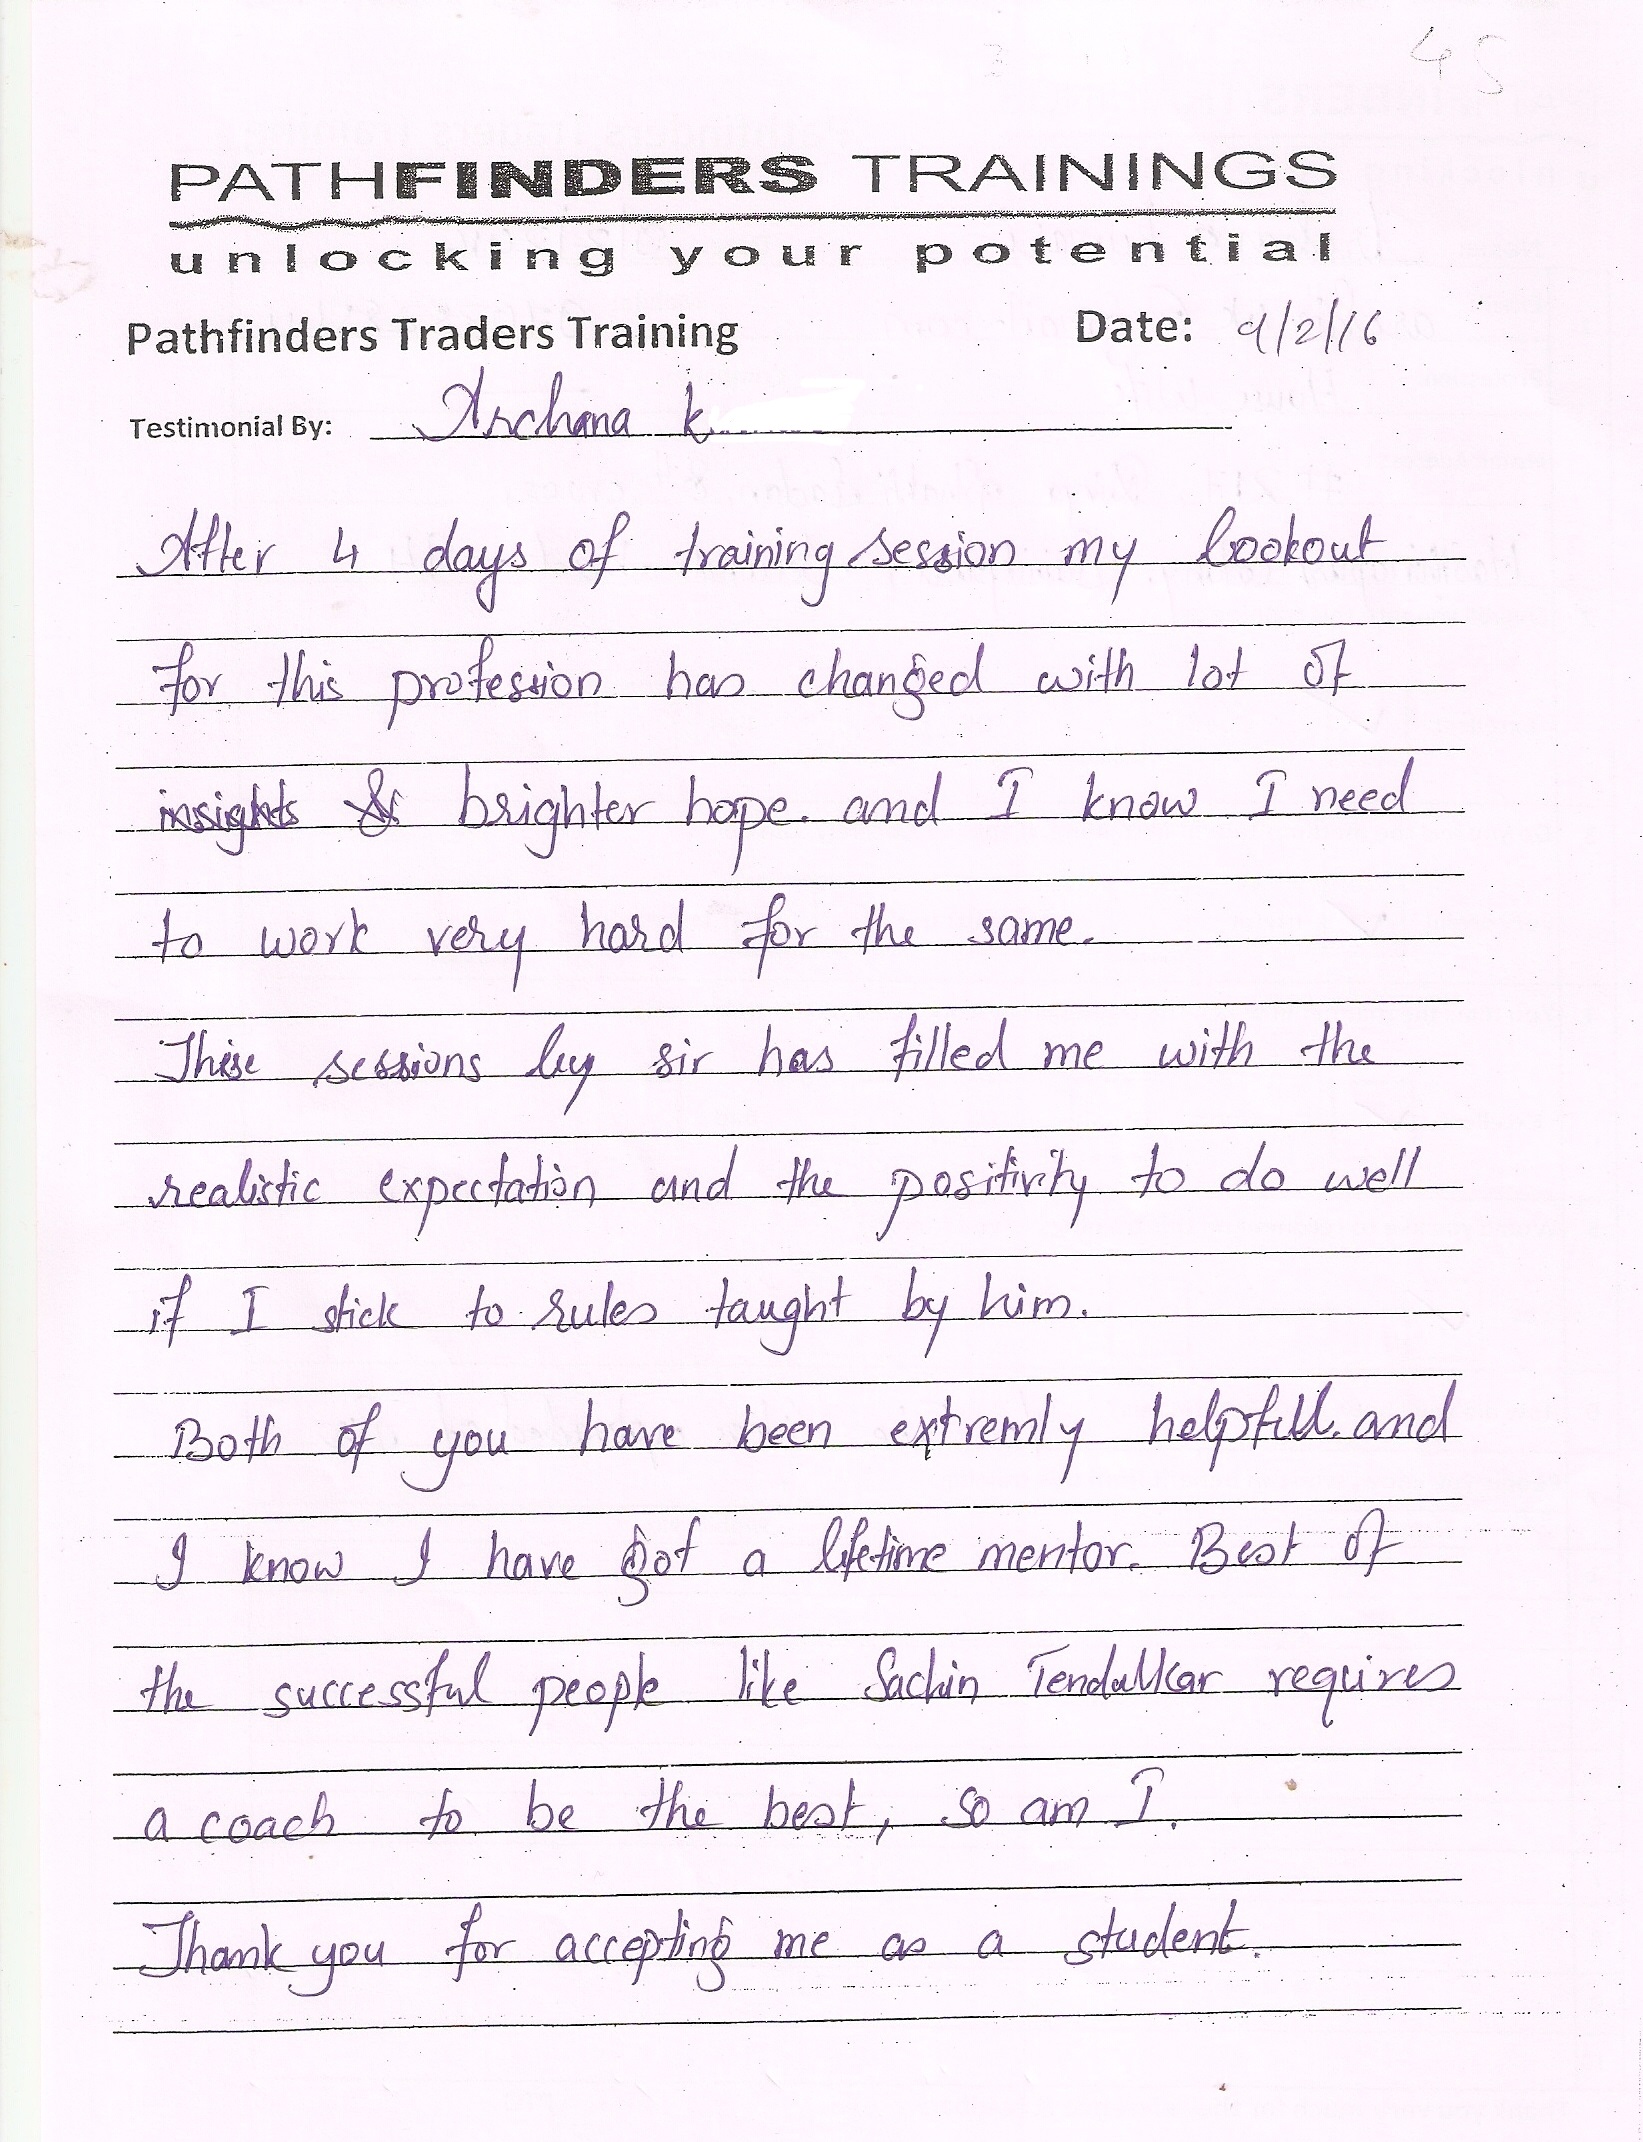 45
PATHFINDERS TRAININGS
unlocking your potential
Pathfinders Traders Training Date: 9/2/16
Testimonial By: Archana K
After 4 days of training session my lookout
for this profession has changed with lot of
insights & brighter hope. and I know I need
to work very hard for the same.
These sessions by sir has filled me with the
realistic expectation and the positivity to do well
if I stick to rules taught by him.
Both of you have been extremly helpfull. and
I know I have got a lifetime mentor. Best of
the successful people like Sachin Tendulkar requires
a coach to be the best, so am I.
Thank you for accepting me as a student.